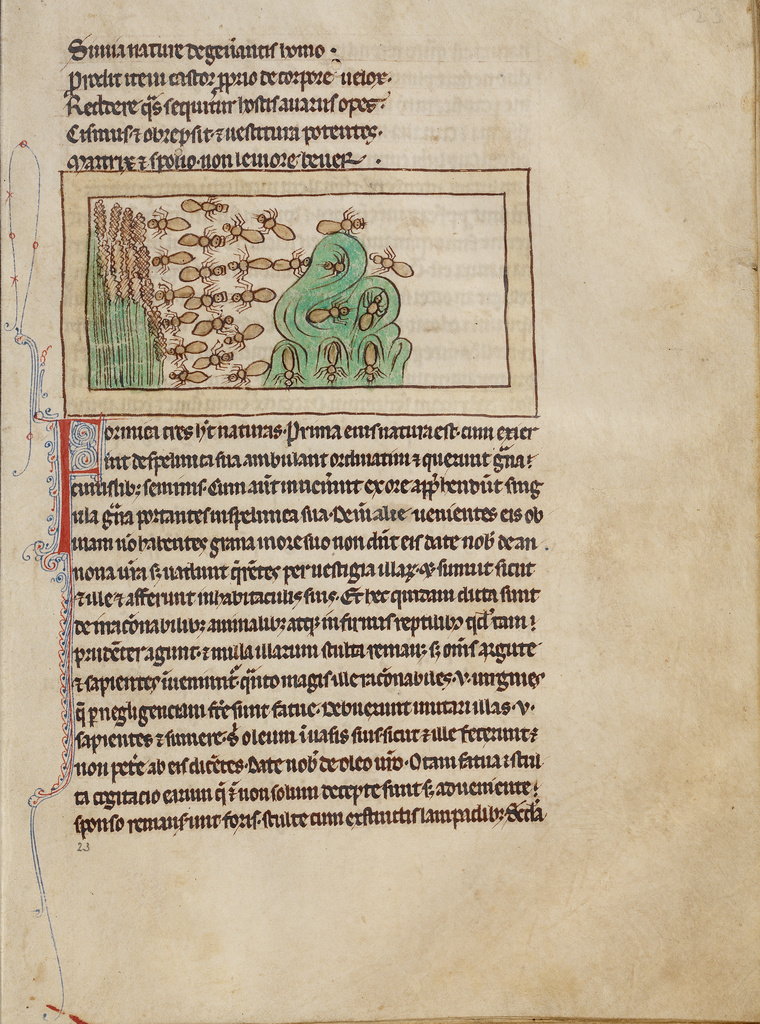 Simia nature degenerantis homo
Prodit item castor proprio de corpore velox
Reddere qs sequitur hostis avarus opes
Cisimus ⁊ obrepsit ⁊ vestitura potentes
Matrix ⁊ spolio non leviore bever
Formica tres hnt naturas Prima eius natura est cum exier
int de spelunca sua ambulant ordinatim ⁊ querunt grana
cuiuslibet seminis Cum autem invenerint ex ore apprehendunt sing
ula grana portantes in spelunca sua venientes eis ob
viam non habentes grana in ore suo non dicunt eis date nobis de an
nona vestra set vadunt querentes per vestigia illarum sumunt sicut
⁊ ille ⁊ afferunt in habitaculis suis Et hec quidam dicta sunt
de irracionabilibus animalibus atque infirmis reptilibus quod tam
prudenter agunt ⁊ nulla illarum stulta remanet set omnes argute
⁊ sapientes quanto magis ille racionabiles v virgines
que per negligenciam sunt fatue Debuerunt imitari illas v
sapientes ⁊ sumere oleum in vasis suis sicut ⁊ ille fecerunt ⁊
non petere ab eis dicentes Date nobis de oleo vestro O tam fatua ⁊ stul
ta cogitacio earum non solum decepte sunt set adveniente
sponso remanserunt foris stulte cum extinctis lampadibus
23